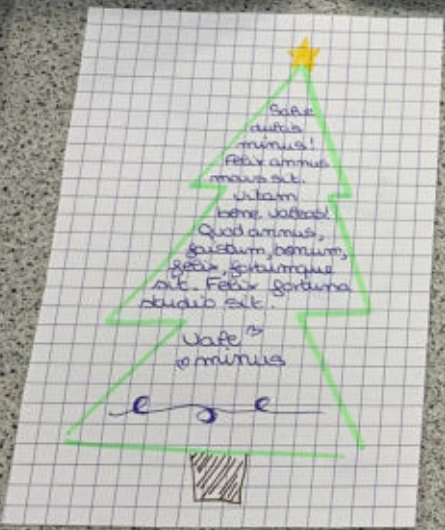 Salve
dulcis
minus!
Felix annus
novus sit.
Vitam
bene vadeas!
Quod annus,
faustum, bonum,
felix, fortumque
sit. Felix fortuna
studio sit.
Vale
minus